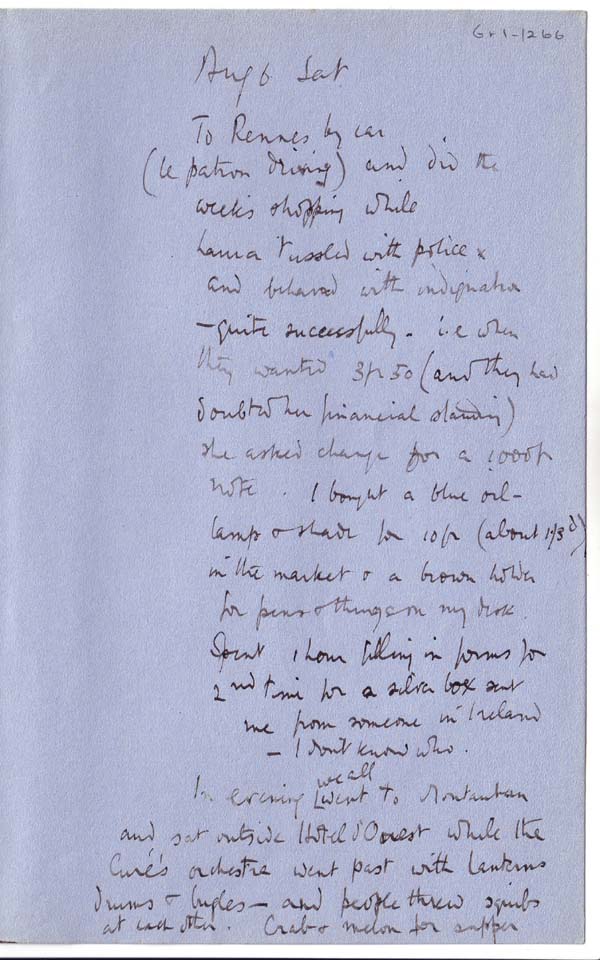 G+1-1266
Aug 6 Sat
To Rennes by car
(le patron driving) and did the
week's shopping while
Laura tussled with police
and behaved with indignation
– quite successfully. i.e when
they wanted 3fr50 (and they had
doubted her financial standing)
she asked change for a 1000fr
note. I bought a blue oil-
lamp & shade for 10fr (about 1/3d)
in the market & a brown holder
for pens & things on my desk.
Spent 1 hour filling in forms for
2nd time for a silver box sent
me from someone in Ireland
– I don't know who.
In evening we all went to Montauban
and sat outside Hotel d'Ouest while the
Curé's orchestra went past with lanterns
drums & bugles – and people threw squibs
at each other. Crab & melon for supper